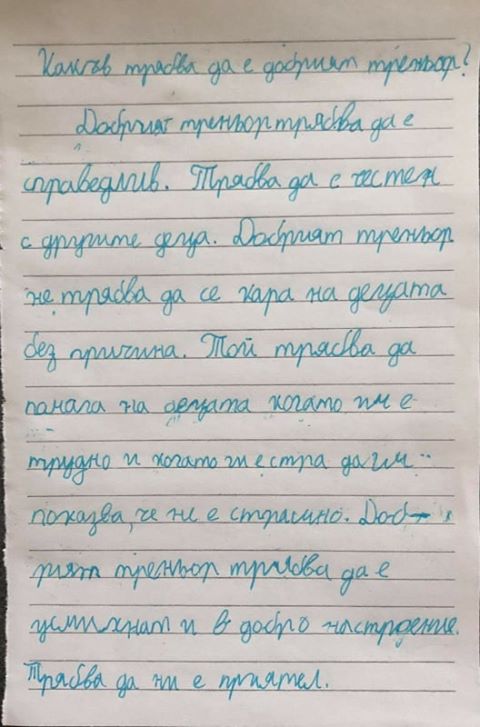 Какъв трябва да е добрият треньор?
Добрият треньор трябва да е
справедлив. Трябва да е честен
с другите деца. Добрият треньор
не трябва да се кара на децата
без причина. Той трябва да
помага на децата когато им е
трудно и когато ги е стра да им
показва, че не е страшно. Доб-
рият треньор трябва да е
усмихнат и в добро настроение.
Трябва да ни е приятел.